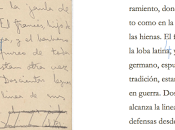 la jaula de
El francés, hijo de
y el bárbaro
de toda
están otra vez
Doscientas leguas
línea de sus
ramiento, don
to como en la
las hienas. El f
la loba latina, y
germano, espu
tradición, estar
en guerra. Dos
alcanza la línea
defensas desde